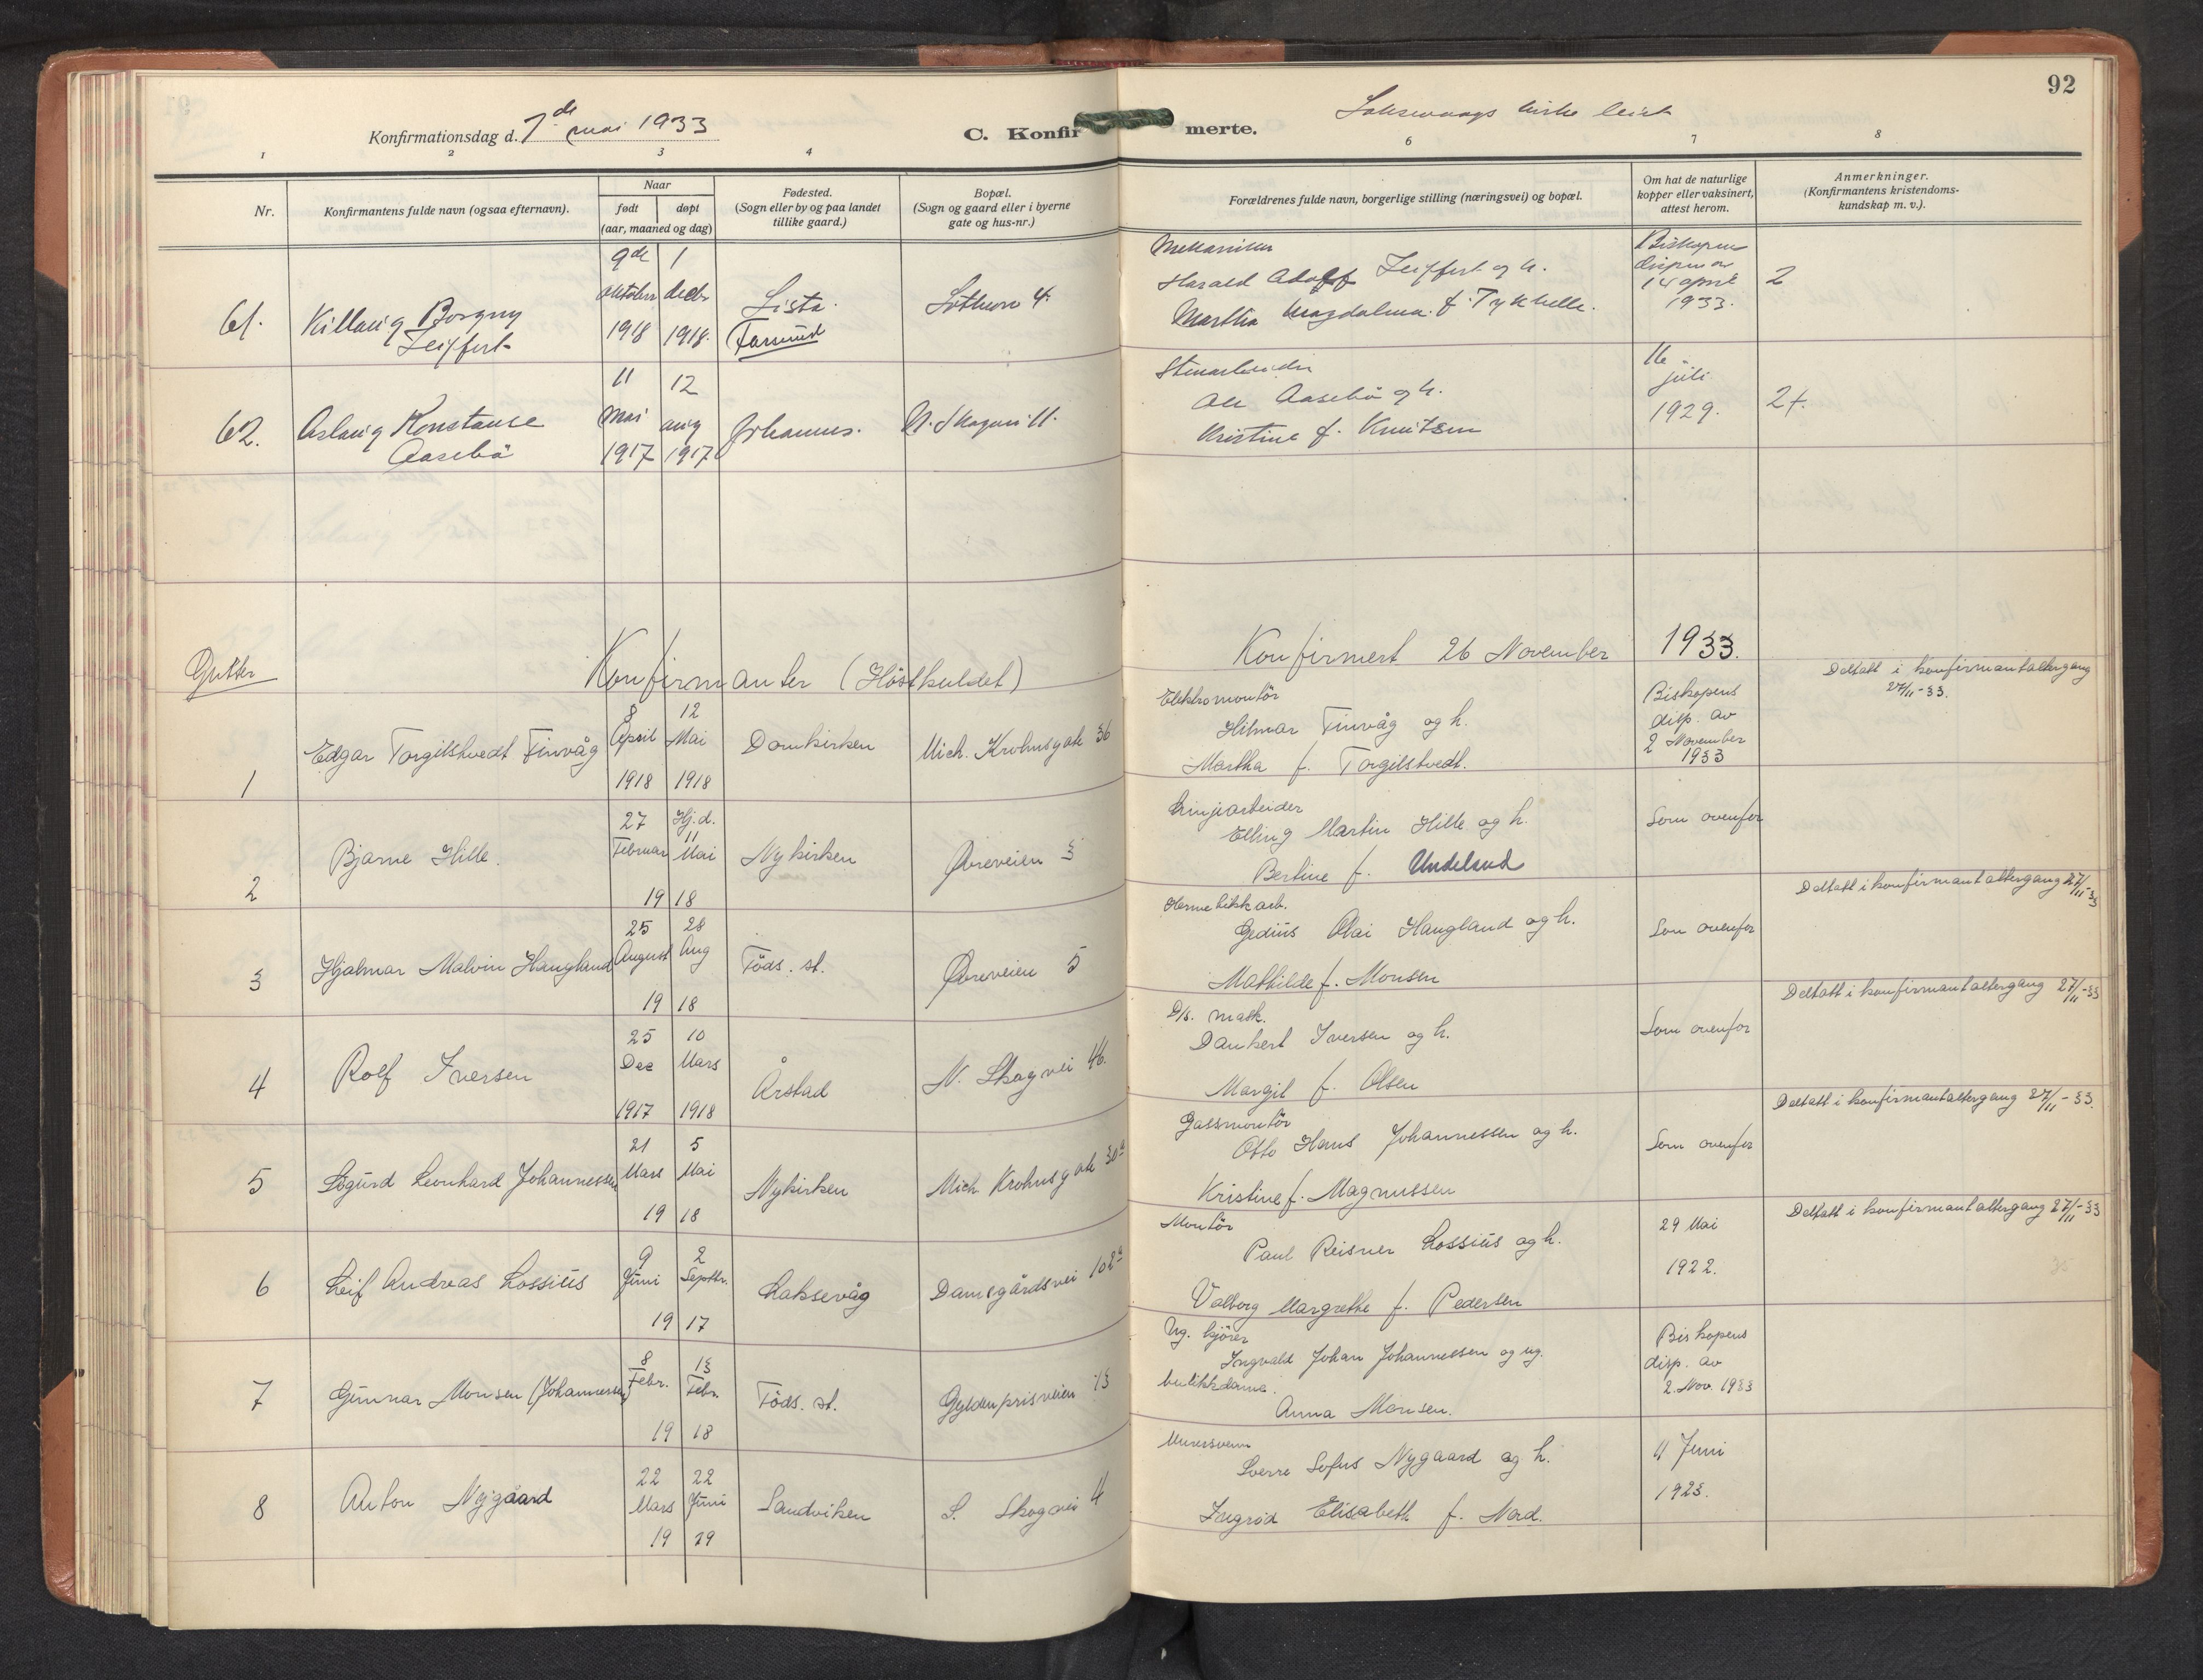 92
Konfirmationsdag d. 7de mai 1933
C. Konfirmerte.
Laksevaags kirke
1 2 3 4 6 7 8
Nr.
Konfirmantens fulde navn (ogsaa efternavn).
Naar
født døpt
(aar, maaned og dag)
Fødested.
(Sogn eller by og paa landet
tillike gaard.)
Bopæl.
(Sogn og gaard eller i byerne
gate og hus-nr.)
Forældrenes fulde navn, borgerlige stilling (næringsvei) og bopæl.
Om hat de naturlige
kopper eller vaksinert,
attest herom.
Anmerkninger.
(Konfirmantens kristendoms-
kundskap m. v.).
61.
Borgny
9de oktober 1918
1 decbr 1918.
Lista.
4.
Mekaniker
Harald Adolf og h.
Martha Magdalena f.
Biskopens
disp. av
april
1933.
2
62.
Aslaug Konstanse
Aasebö
11 Mai 1917
12 aug 1917
Johannes.
N. Skogvei 11.
Stenarbeider
Ole Aasebö og h.
Kristine f. Knutsen
16
juli
1929.
2+.
Gutter
Konfirmanter (Høstkuldet)
Konfirmert 26 November 1933.
1
Edgar Torgilstvedt Finvåg
8 April 1918
12 Mai 1918
Domkirken
Mich. Krohnsgate 36
Elektromontör
Hilmar Finvåg og h.
Martha f. Torgilstvedt.
Biskopens
disp. av
2 November
1933
Deltatt i konfirmantaltergang
27/11-33.
2
Bjarne Hille.
27 Februar
Hj.d. 11 Mai
19 18
Nykirken
Øvreveien 3
Linjearbeider
Elling Martin Hille og h.
Bertine f. Undeland
Som ovenfor
3
Hjalmar Malvin Haugland
25 August
28 Aug
19 18
Föds. st.
Øvreveien 5
Hermetikkarb.
Gedius Olai Haugland og h.
Mathilde f. Monsen
Som ovenfor
Deltatt i konfirmantaltergang 27/11-33
4
Rolf Iversen
25 Dec 1917
10 Mars 1918
Årstad
N. Skogvei 46.
D/s. mask.
Dankert Iversen og h.
Margit f. Olsen
Som ovenfor
Deltatt i konfirmantaltergang 27/11-33
5
Sigurd Leonhard Johannessen
21 Mars
5 Mai
19 18
Nykirken
Mich Krohnsgate 30a
Gassmontör
Otto Hans Johannessen og h.
Kristine f. Magnussen
Som ovenfor
Deltatt i konfirmantaltergang 27/11-33.
6
Leif Andreas Lossius
9 Juni
2 Septbr.
19 17
Laksevåg
Damsgårdsvei 102a
Montör
Paul Reisner Lossius og h.
Valborg Margrethe f. Pedersen
29 Mai
1922.
Deltatt i konfirmantaltergang 27/11-33
7
Gunnar Monsen (Johannessen)
8 Febr.
13 Febr.
19 18
Föds. st.
Gyldenprisveien 13
Ug. kjörer
Ingvald Johan Johannessen og ug.
butikkdame.
Anna Monsen.
Biskopens
disp. av
2. Nov. 1933
8
Anton Nygaard
22 Mars
22 Juni
19 29
Sandviken
S. Skogvei 4
Murersvenn
Sverre Sofus Nygaard og h.
Ingrid Elisabeth f. Nord.
4 Juni
1923.